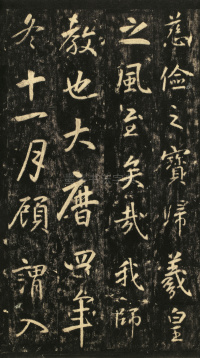 慈儉之寶歸羲皇
之風至矣哉我師
教也大曆四年
冬十一月顧謂入